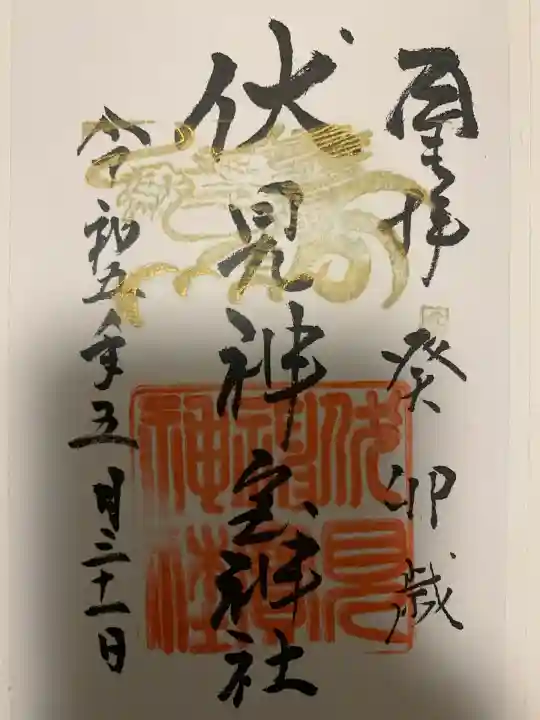 奉拝 癸卯歳
伏見神宝神社
令和五年五月三十一日
伏見神寳神社